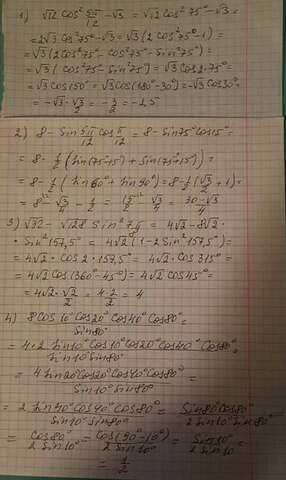 1) √12 cos² 5π/12 - √3 = √12 cos² 75° - √3 =
= 2√3 cos² 75° - √3 = √3(2cos² 75° - 1) =
= √3(2cos² 75° - cos² 75° - sin² 75°) =
= √3(cos² 75° - sin² 75°) = √3 cos 2·75° =
= √3 cos 150° = √3 cos(180° - 30°) = -√3 cos 30° =
= -√3 · √3/2 = -3/2 = -1,5
2) 8 - sin 5π/12 cos π/12 = 8 - sin 75° cos 15° =
= 8 - 1/2 (sin(75°-15°) + sin(75°+15°)) =
= 8 - 1/2 (sin 60° + sin 90°) = 8 - 1/2 (√3/2 + 1) =
= 8 - √3/4 - 1/2 = = 30-√3/4
3) √32 - √128 sin² 7π/8 = 4√2 - 8√2 ·
· sin² 157,5° = 4√2 (1 - 2 sin² 157,5°) =
= 4√2 · cos 2 · 157,5° = 4√2 · cos 315° =
= 4√2 cos (360° - 45°) = 4√2 cos 45° =
= 4√2 · √2/2 = 4·2/2 = 4
4) 8 cos 10° cos 20° cos 40° cos 80° =
sin 80°
= 4·2 sin 10° cos 10° cos 20° cos 40° cos 80° =
sin 10° sin 80°
= 4 sin 20° cos 20° cos 40° cos 80° =
sin 10° sin 80°
= 2 sin 40° cos 40° cos 80° / sin 10° sin 80° = sin 80° cos 80° / 2 sin 10° sin 80° =
= cos 80° / 2 sin 10° = cos(90°-10°) / 2 sin 10° = sin 10° =
= 1/2